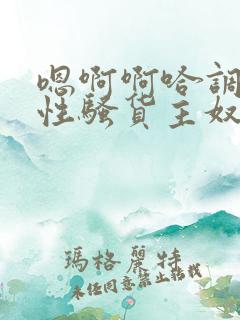 嗯啊啊哈調
性騷貨主奴
瑪格麗特
未经同意禁止转载